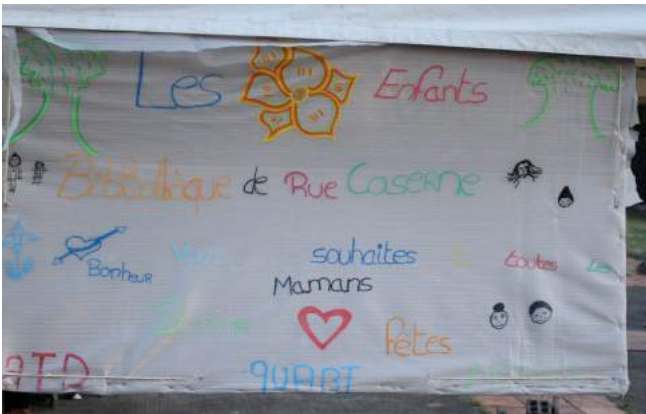 Les Enfants
Bibliothèque de Rue Caserne
Bonheur Vous souhaites à toutes Les
Mamans
Bonne Fêtes
ATD QUART